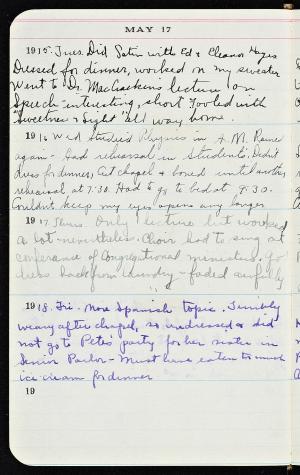 MAY 17
1915. Tues. Did Satin with Ed & Eleanor Hayes
Dressed for dinner, worked on my sweater
Went to Dr. MacCracken's lecture on
Speech - interesting, short. Fooled with
"Sweetness & Light" all way home.
1916 Wed Studied Physics in A.M. Rained
again - Had rehearsal in Students'. Didn't
dress for dinner, Cut chapel & bored until another
rehearsal at 7:30. Had to go to bed at 9:30.
Couldn't keep my eyes open any longer
1917 Thurs. Only 1 lecture but worked
a lot nevertheless. Choir had to sing at
conference of Congregational ministers.
dress back from laundry - faded awfully
1918. Fri - More Spanish topic. Terribly
weary after chapel, so undressed & did
not go to Pete's party for her sister in
Senior Parlor - Must have eaten too much
ice cream for dinner
19